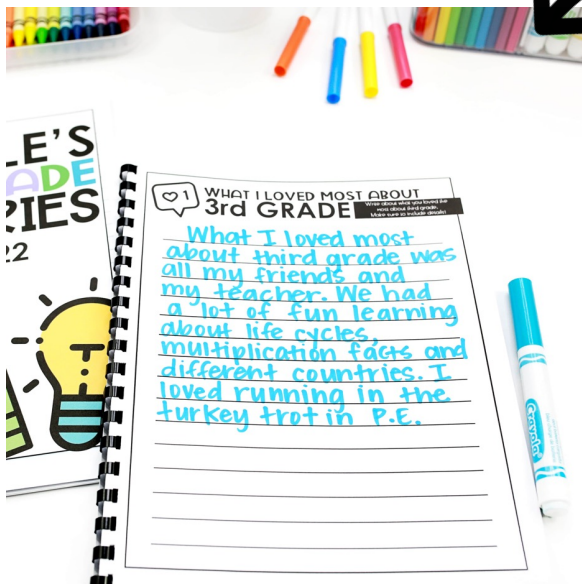 LE'S
ADE
RIES
22
1
WHAT I LOVED MOST ABOUT
3rd GRADE
Write about what you loved the
most about third grade.
Make sure to include details!
What I loved most
about third grade was
all my friends and
my teacher. We had
a lot of fun learning
about life cycles,
multiplication facts and
different countries. I
loved running in the
turkey trot in P.E.
Crayola